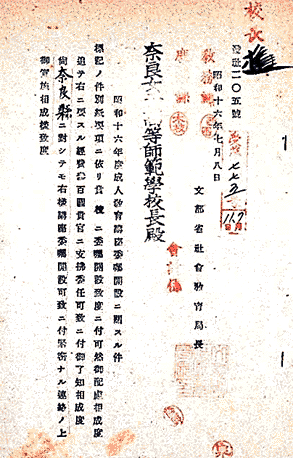 發社二〇五號
昭和十六年七月八日
文部省社會教育局長
奈良女子高等師範學校長殿
昭和十六年度成人教育講座委囑開設ニ關スル件
標記ノ件別紙要項ニ依リ貴校ニ委囑開設致度ニ付可然御配慮相成度
追テ右ニ要スル經費壹百圓貴官ニ支拂委任可致ニ付御了知相成度
尚奈良縣ニ對シテモ右様講座委囑開設可致ニ付緊密ナル連絡ノ上
御實施相成様致度